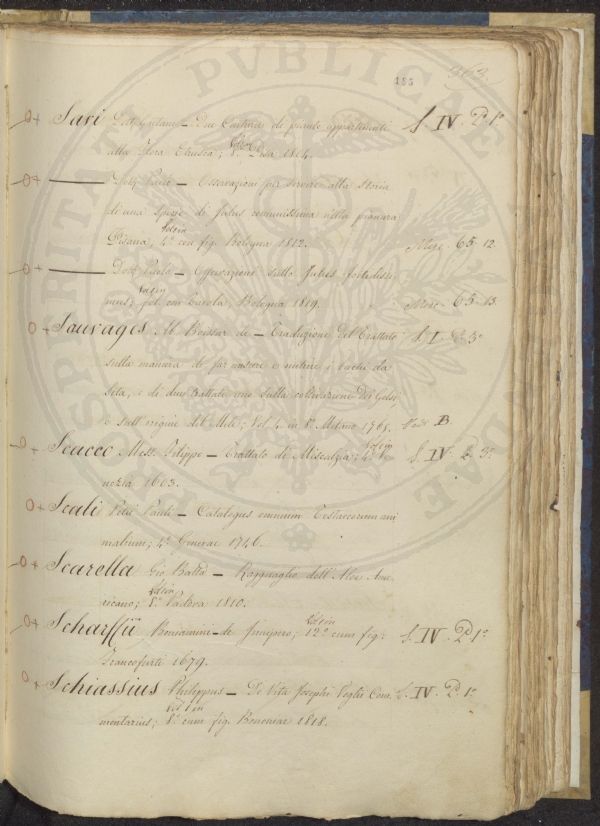 PVBLICAE
SPERITATI
185 363
Savi Dott Gaetano — Due Centurie di piante appartenenti S. IV. P. 1°
alla Flora Etrusca; Vol in 8° Pisa 1804.
— Dott Paolo — Osservazioni per servire alla storia
di una specie di Julus communissima nella pianura
Pisana, Vol in 4° con fig. Bologna 1812. Misc. 65-12
— Dott Paolo — Osservazioni sulla Julus foetidissi
mus; Vol in fol. con tavola, Bologna 1819. Misc. 65-13.
Sauvages Ab. Boissier de — Traduzione del Trattato S. I. P. 3°
sulla maniera di far nascere e nutrire i bachi da
seta, e di due trattati uno sulla coltivazione dei Gelsi,
e sull'origine del Mele; Vol. 1. in 8° Milano 1765. Vedi B.
Scacco Mess. Filippo — Trattato di Miscalzia; Vol in 4° Ve S. IV. P. 3°
nezia 1603.
Scali Petri Pauli — Catalogus omnium Testaceorum ani
malium; 4° Genevae 1746.
Scarella Gio Batta — Ragguaglio dell'Aloe Ame
ricano; Vol in 8° Padova 1810.
Scharffii Beniamini — de Junipero; Vol in 12° cum fig: S. IV. P. 1°
Francoforti 1679.
Schiassius Philippus — De Vita Josephi Veglii Com S. IV. P. 1°
mentarius; Vol 1 in 8° cum fig. Bononiae 1818.